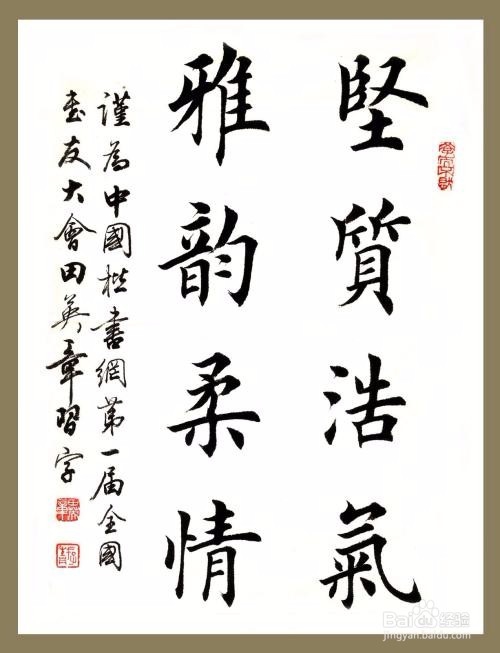 堅質浩氣
雅韵柔情
謹為中國楷書網第一届全國
書友大會田英章習字
Baidu经验
jingyan.baidu.com